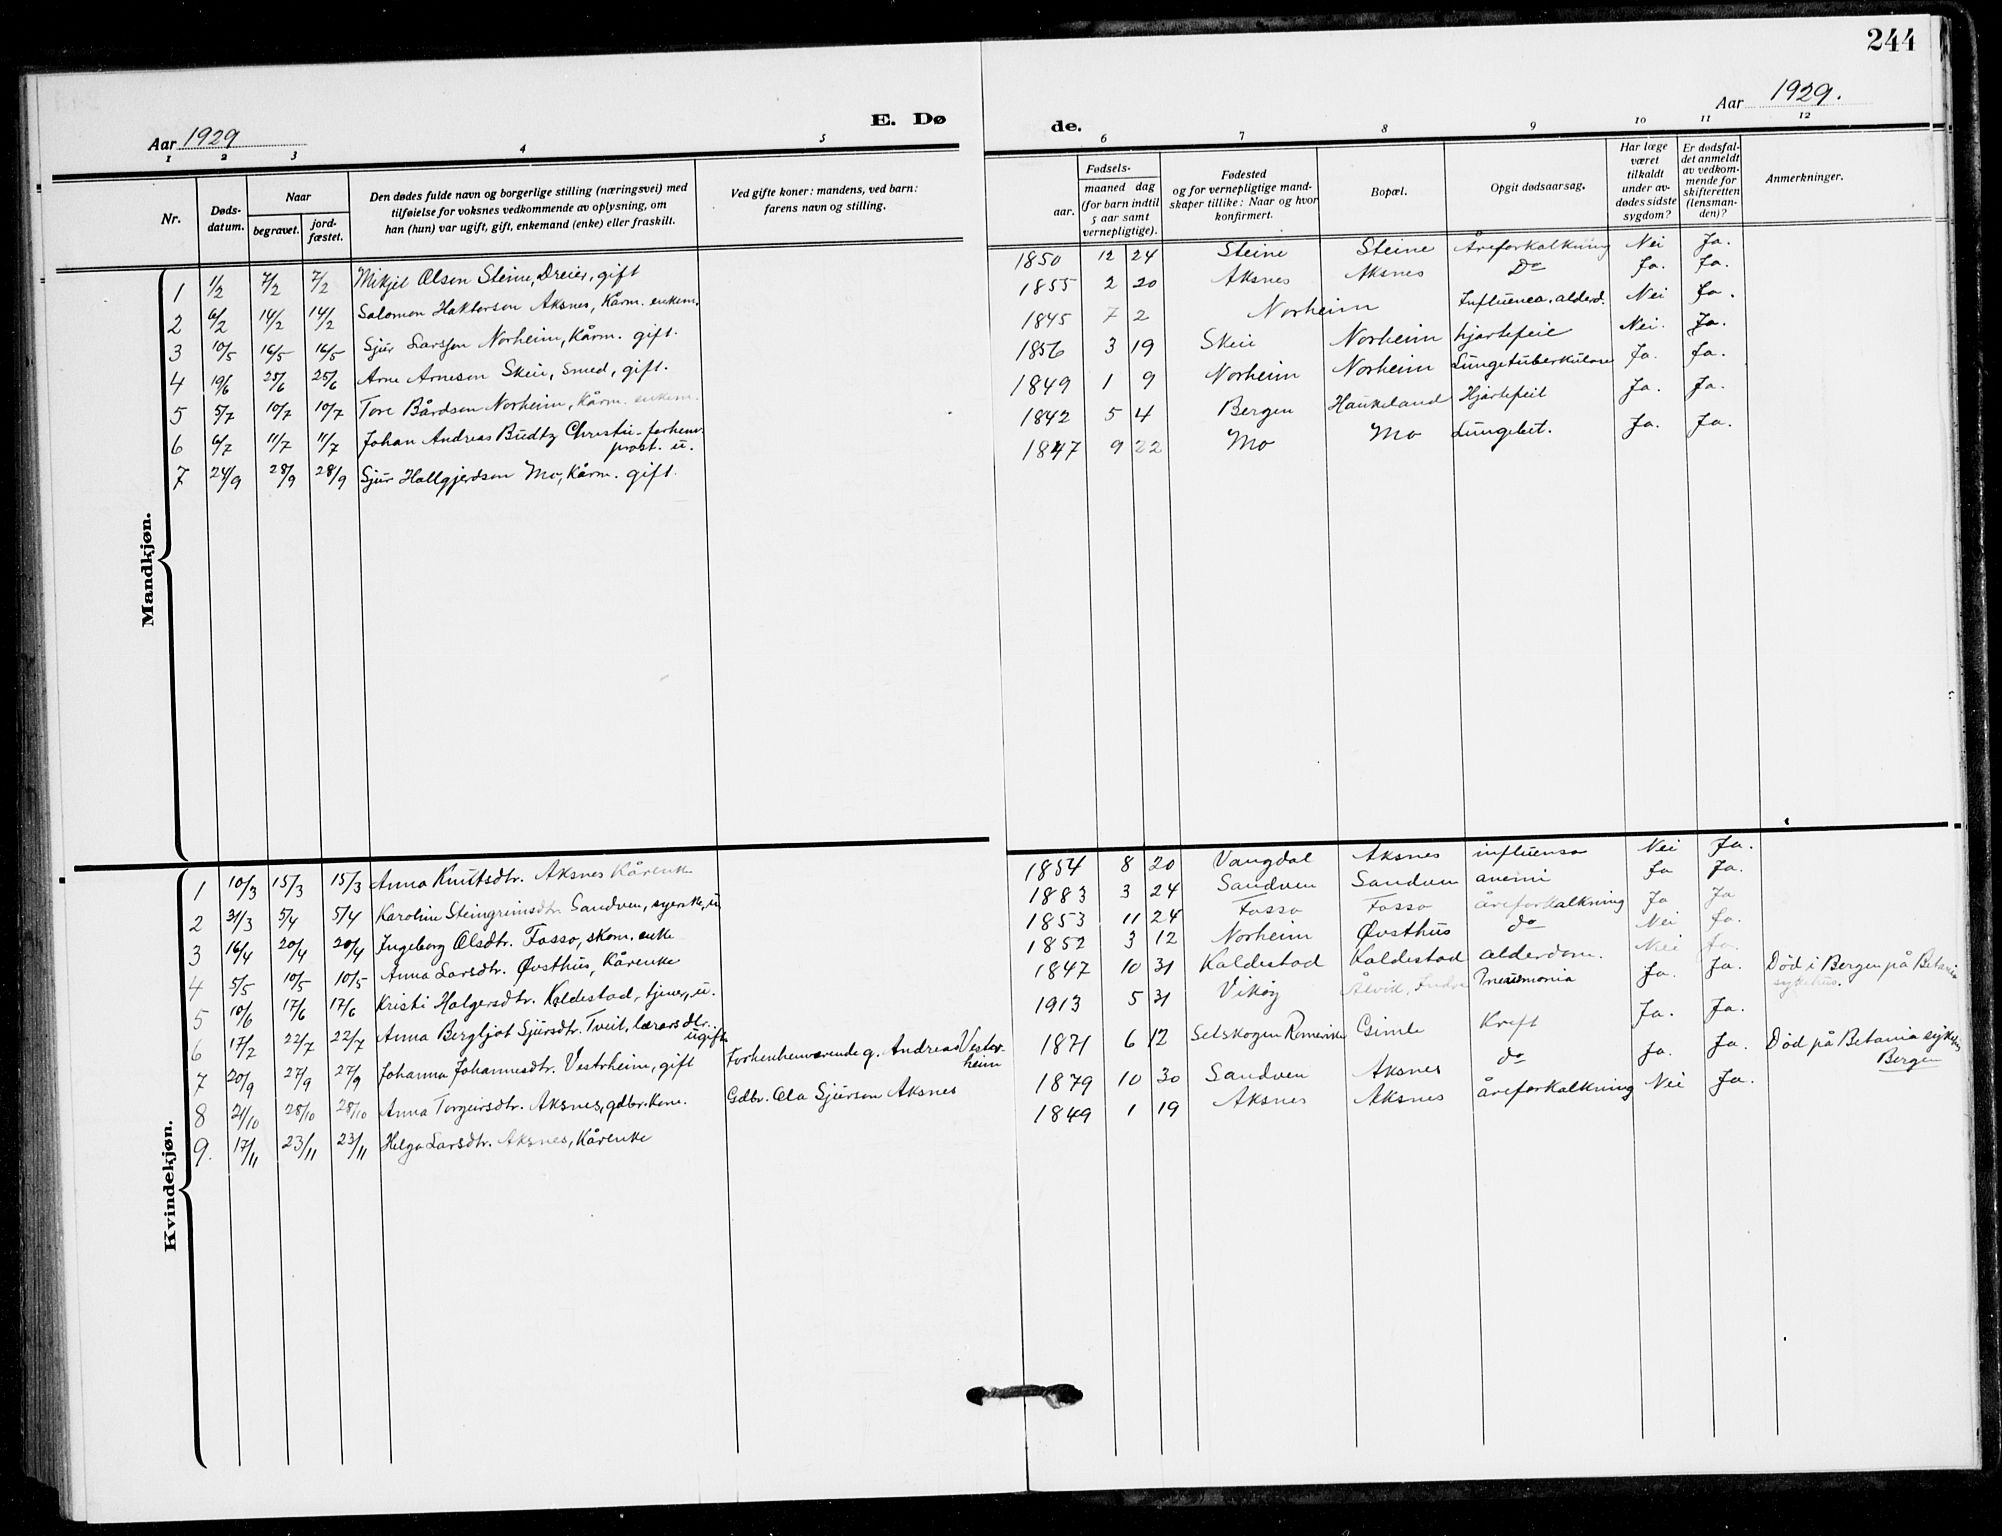 244
Aar 1929
E. Dø
de.
Aar 1929.
1 2 3 4 5 6 7 8 9 10 11 12
Nr.
Døds-
datum.
Naar
begravet.
jord-
fæstet.
Den dødes fulde navn og borgerlige stilling (næringsvei) med
tilføielse for voksnes vedkommende av oplysning, om
han (hun) var ugift, gift, enkemand (enke) eller fraskilt.
Ved gifte koner: mandens, ved barn:
farens navn og stilling.
Fødsels-
aar.
maaned dag
(for barn indtil
5 aar samt
vernepligtige).
Fødested
og for vernepligtige mand-
skaper tillike: Naar og hvor
konfirmert.
Bopæl.
Opgit dødsaarsag.
Har læge
været
tilkaldt
under av-
dødes sidste
sygdom?
Er dødsfal-
det anmeldt
av vedkom-
mende for
skifteretten
(lensman-
den)?
Anmerkninger.
Mandkjøn.
1 1/2 7/2 7/2 Mikjel Olsen Steine, Dreier, gift 1850 12 24 Steine Steine Åreforkalkning Nei Ja.
2 6/2 14/2 14/2 Salomon Haktorson Aksnes, Kårm. enkem. 1855 2 20 Aksnes Aksnes Do Ja. Ja.
3 10/5 16/5 16/5 Sjur Larssen Norheim, Kårm. gift. 1845 7 2 Norheim Influenca, alderd. Nei Ja.
4 19/6 25/6 25/6 Arne Arneson Skeie, Smed, gift. 1856 3 19 Skeie Norheim hjartefeil Nei. Ja.
5 5/7 10/7 10/7 Tore Bårdsen Norheim, Kårm. enkem. 1849 1 9 Norheim Norheim Lungetuberkulose Ja. Ja.
6 6/7 11/7 11/7 Johan Andreas Budtz Christie - forhenv.
prost. u. 1842 5 4 Bergen Haukeland Hjartefeil Ja. Ja.
7 24/9 28/9 28/9 Sjur Hallgjerdson Mo, Kårm. gift. 1847 9 22 Mo Mo Lungebet. Ja. Ja.
Kvindekjøn.
1 10/3 15/3 15/3 Anna Knutsdtr. Aksnes Kårenke 1854 8 20 Vangdal Aksnes influensa Nei Ja.
2 31/3 5/4 5/4 Karoline Steingrimsdtr. Sandven, syerske, u. 1883 3 24 Sandven Sandven anemi Ja Ja.
3 16/4 20/4 20/4 Ingeborg Olsdtr. Fosso, skom. enke 1853 11 24 Fosso Fosso åreforkalkning Ja Ja
4 5/5 10/5 10/5 Anna Larsdtr. Øvsthus, Kårenke 1852 3 12 Norheim Øvsthus do Nei Ja.
5 10/6 17/6 17/6 Kristi Holgersdtr. Koldestad, tjener, u. 1847 10 31 Kaldestad Kaldestad alderdom. Nei Ja.
6 17/2 22/7 22/7 Anna Bergljot Sjursdtr. Tveit, lærarsdtr.
ugift 1913 5 31 Vikøy Ålvik, Indre Pneumonia Ja. Ja. Død i Bergen på Betania
sykehus.
7 20/9 27/9 27/9 Johanna Johannesdtr. Vestrheim, gift Forhenhenværende g. Andreas Vester-
heim 1871 6 12 Selskogen Romerike Gsimle Kreft Ja. Ja.
8 21/10 28/10 28/10 Anna Torgeirsdtr. Aksnes, gdbr. Kone. Gdbr. Ola Sjurson Aksnes 1879 10 30 Sandven Aksnes do Ja. Ja. Død på Betania sykehs
Bergen
9. 17/11 23/11 23/11 Helga Larsdtr. Aksnes, Kårenke 1849 1 19 Aksnes Aksnes åreforkalkning Nei Ja.